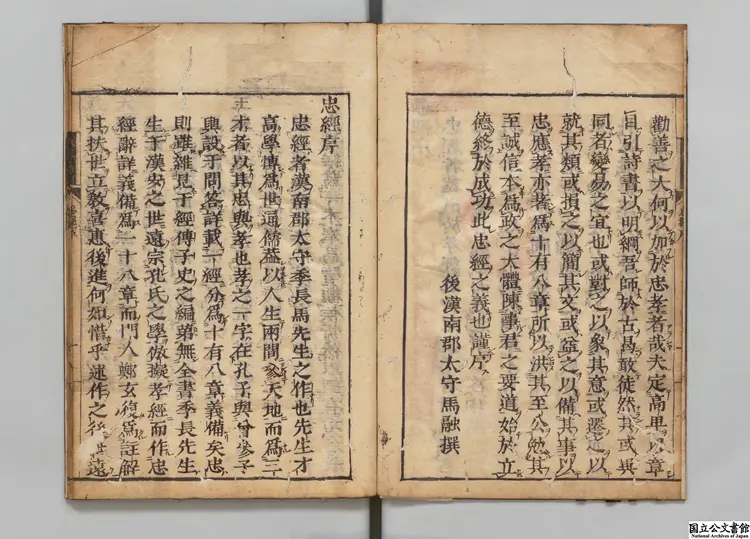 勸善之大何以加於忠孝者哉夫定高卑以章
目引詩書以明綱吾師於古曷敢徒然其或異
同者變易之宜也或對之以象其意或遷之以
就其類或損之以簡其文或益之以備其事以
忠應孝亦著爲十有八章所以洪其至公勉其
至誠信本爲政之大體陳事君之要道始於立
德終於成功此忠經之義也謹序
後漢南郡太守馬融撰
忠經序
忠經者漢南郡太守季長馬先生之作也先生才
高學博爲世通儒葢以人生兩間參天地而爲三
才者以其忠與孝也孝之一字在孔子與曾參子
輿設于問答詳載一經分爲十有八章義備矣忠
則雖雜見于經傳子史之編苐無全書季長先生
生于漢安之世遠宗孔氏之學倣擬孝經而作忠
經辭詳義備爲一十八章而門人鄭玄復爲註解
其扶世立教嘉惠後進何如惜乎運作之後世遠
国立公文書館
National Archives of Japan